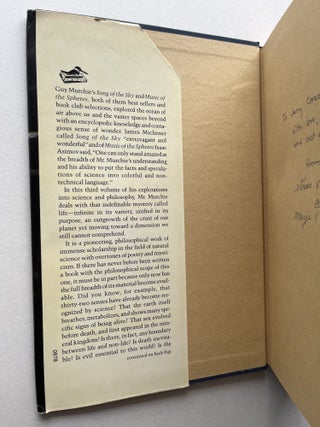 Guy Murchie's Song of the Sky and Music of
the Spheres, both of them best sellers and
book club selections, explored the ocean of
air above us and the vaster spaces beyond
with an encyclopedic knowledge and conta-
gious sense of wonder. James Michener
called Song of the Sky "extravagant and
wonderful" and of Music of the Spheres Isaac
Asimov said, "One can only stand amazed at
the breadth of Mr. Murchie's understanding
and his ability to put the facts and specula-
tions of science into colorful and non-
technical language."
In this third volume of his explorations
into science and philosophy, Mr. Murchie
deals with that indefinable mystery called
life—infinite in its variety, unified in its
purpose, an outgrowth of the crust of our
planet yet moving toward a dimension we
still cannot comprehend.
It is a pioneering, philosophical work of
immense scholarship in the field of natural
science with overtones of poetry and mysti-
cism. If there has never before been written
a book with the philosophical scope of this
one, it must be in part because only now has
the full breadth of its material become avail-
able. Did you know, for example, that
thirty-two senses have already become rec-
ognized by science? That the earth itself
breathes, metabolizes, and shows many spe-
cific signs of being alive? That sex evolved
before death, and first appeared in the min-
eral kingdom? Is there, in fact, any boundary
between life and non-life? Is death inevita-
ble? Is evil essential to this world? Is the
continued on back flap
0978
To my
with love,
and
from